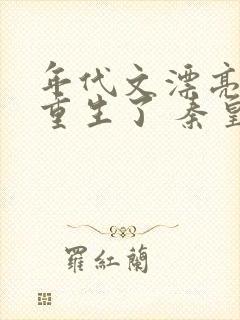 年代文漂亮
重生了 秦
羅紅蘭